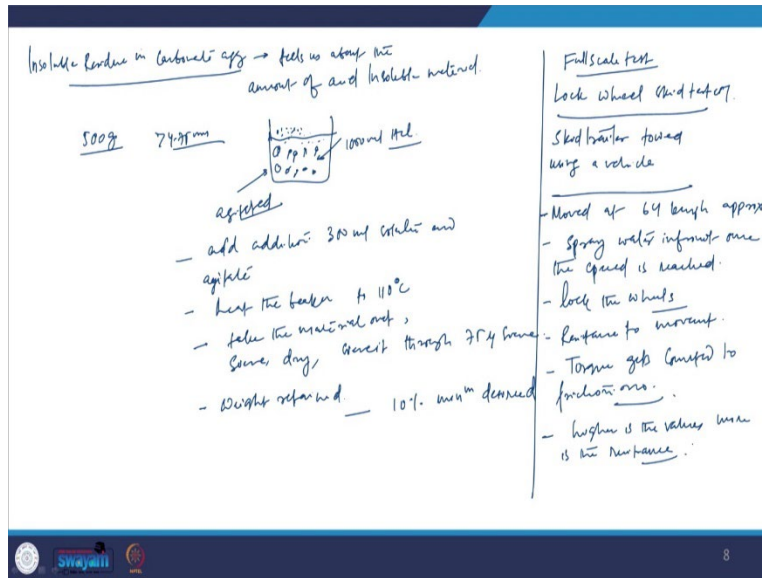 Insoluble Residue in Carbonate agg → tells us about the
amount of acid Insoluble material.
500g
74.75 mm
1000 ml Hcl.
agitated
- add addition 300 ml solution and
agitate
- heat the beaker to 110°C
- take the material out,
sieve, dry, sieve it through 75 μ sieve
- weight retained. 10% minm desired
Full scale test
Lock wheel skid tester.
Skid trailer towed
using a vehicle
- Moved at 64 kmph approx
- Spray water infront once
the speed is reached.
- lock the wheels
- Resistance to movement.
- Torque gets converted to
friction nos.
- higher is the values more
is the resistance.
swayam
8